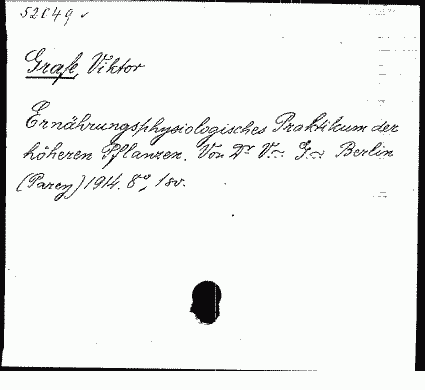 52049
Grafe, Viktor
Ernährungsphysiologisches Praktikum der
höheren Pflanzen. Von Dr V.~ G.~ Berlin
(Parey) 1914. 8°, 1 sv.